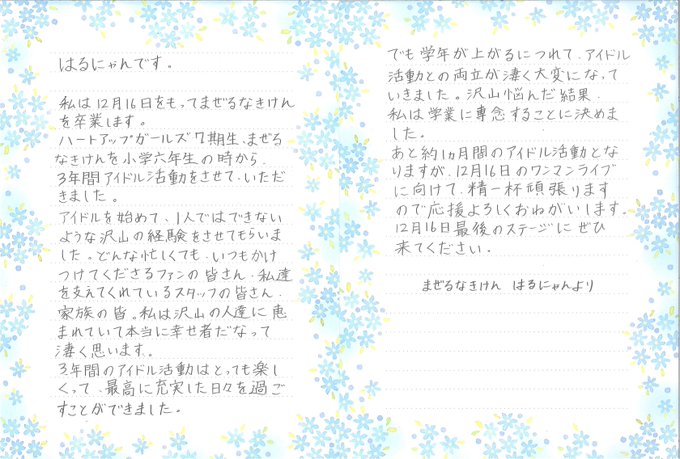 はるにゃんです。
私は12月16日をもってまぜるなきけん
を卒業します。
ハートアップガールズ7期生、まぜる
なきけんを小学六年生の時から、
3年間アイドル活動をさせていただ
きました。
アイドルを始めて、1人ではできない
ような沢山の経験をさせてもらいま
した。どんな忙しくても、いつもかけ
つけてくださるファンの皆さん、私達
を支えてくれているスタッフの皆さん、
家族の皆。私は沢山の人達に恵
まれていて本当に幸せ者だなって
凄く思います。
3年間のアイドル活動はとっても楽し
くって、最高に充実した日々を過ご
すことができました。
でも学年が上がるにつれて、アイドル
活動との両立が凄く大変になって
いきました。沢山悩んだ結果、
私は学業に専念することに決めま
した。
あと約1ヵ月間のアイドル活動とな
りますが、12月16日のワンマンライブ
に向けて、精一杯頑張ります
ので応援よろしくおねがいします。
12月16日最後のステージにぜひ
来てください。
まぜるなきけん はるにゃんより